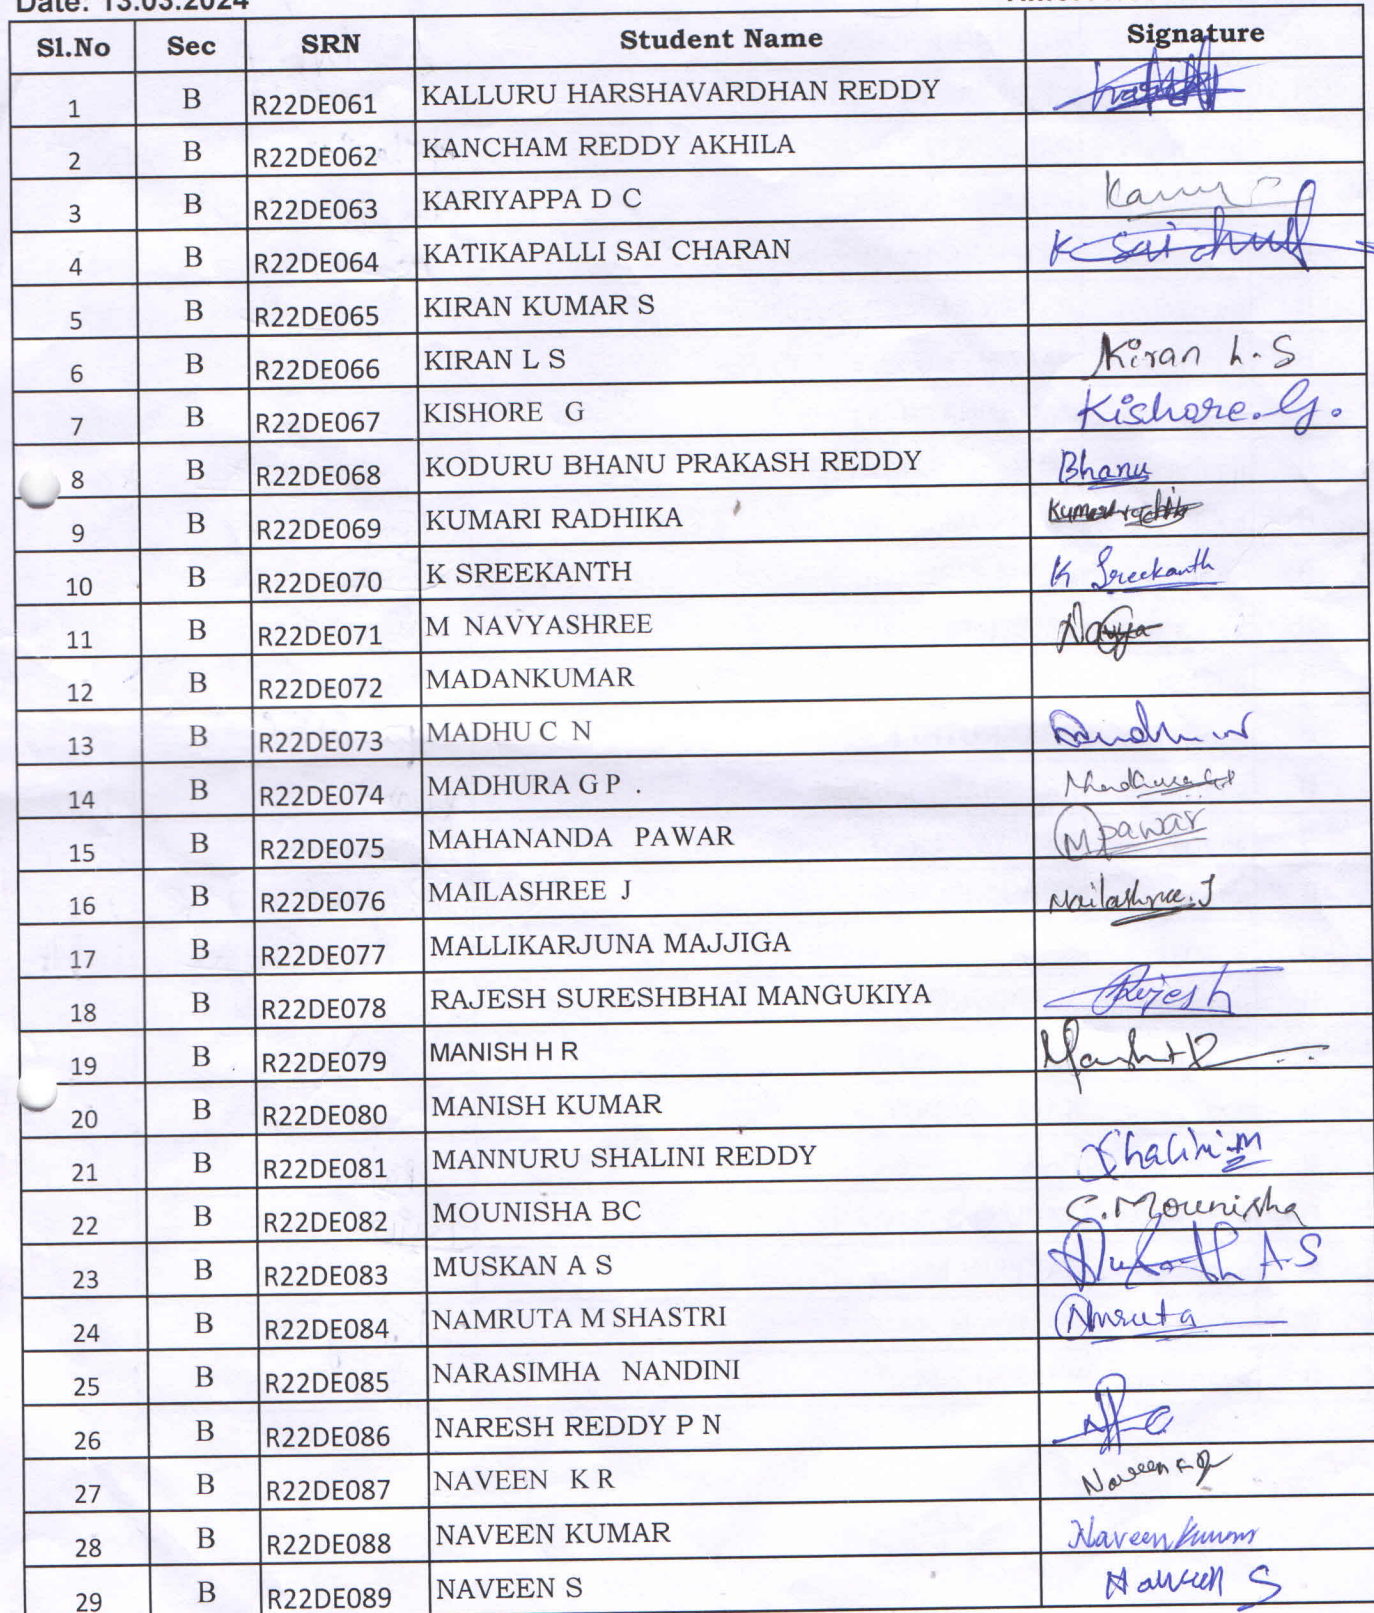 Date: 13.03.2024
Sl.No Sec SRN Student Name Signature
1 B R22DE061 KALLURU HARSHAVARDHAN REDDY
2 B R22DE062 KANCHAM REDDY AKHILA
3 B R22DE063 KARIYAPPA D C
4 B R22DE064 KATIKAPALLI SAI CHARAN K Sai
5 B R22DE065 KIRAN KUMAR S
6 B R22DE066 KIRAN L S Kiran L.S
7 B R22DE067 KISHORE G Kishore.G.
8 B R22DE068 KODURU BHANU PRAKASH REDDY Bhanu
9 B R22DE069 KUMARI RADHIKA
10 B R22DE070 K SREEKANTH K Sreekanth
11 B R22DE071 M NAVYASHREE Navya
12 B R22DE072 MADANKUMAR
13 B R22DE073 MADHU C N
14 B R22DE074 MADHURA G P . Madhura G P
15 B R22DE075 MAHANANDA PAWAR M pawar
16 B R22DE076 MAILASHREE J Mailashree.J
17 B R22DE077 MALLIKARJUNA MAJJIGA
18 B R22DE078 RAJESH SURESHBHAI MANGUKIYA Rajesh
19 B R22DE079 MANISH H R
20 B R22DE080 MANISH KUMAR
21 B R22DE081 MANNURU SHALINI REDDY Shalini M
22 B R22DE082 MOUNISHA BC C. Mounisha
23 B R22DE083 MUSKAN A S A.S
24 B R22DE084 NAMRUTA M SHASTRI Namruta
25 B R22DE085 NARASIMHA NANDINI
26 B R22DE086 NARESH REDDY P N
27 B R22DE087 NAVEEN K R Naveen K R
28 B R22DE088 NAVEEN KUMAR Naveen Kumar
29 B R22DE089 NAVEEN S Naveen S